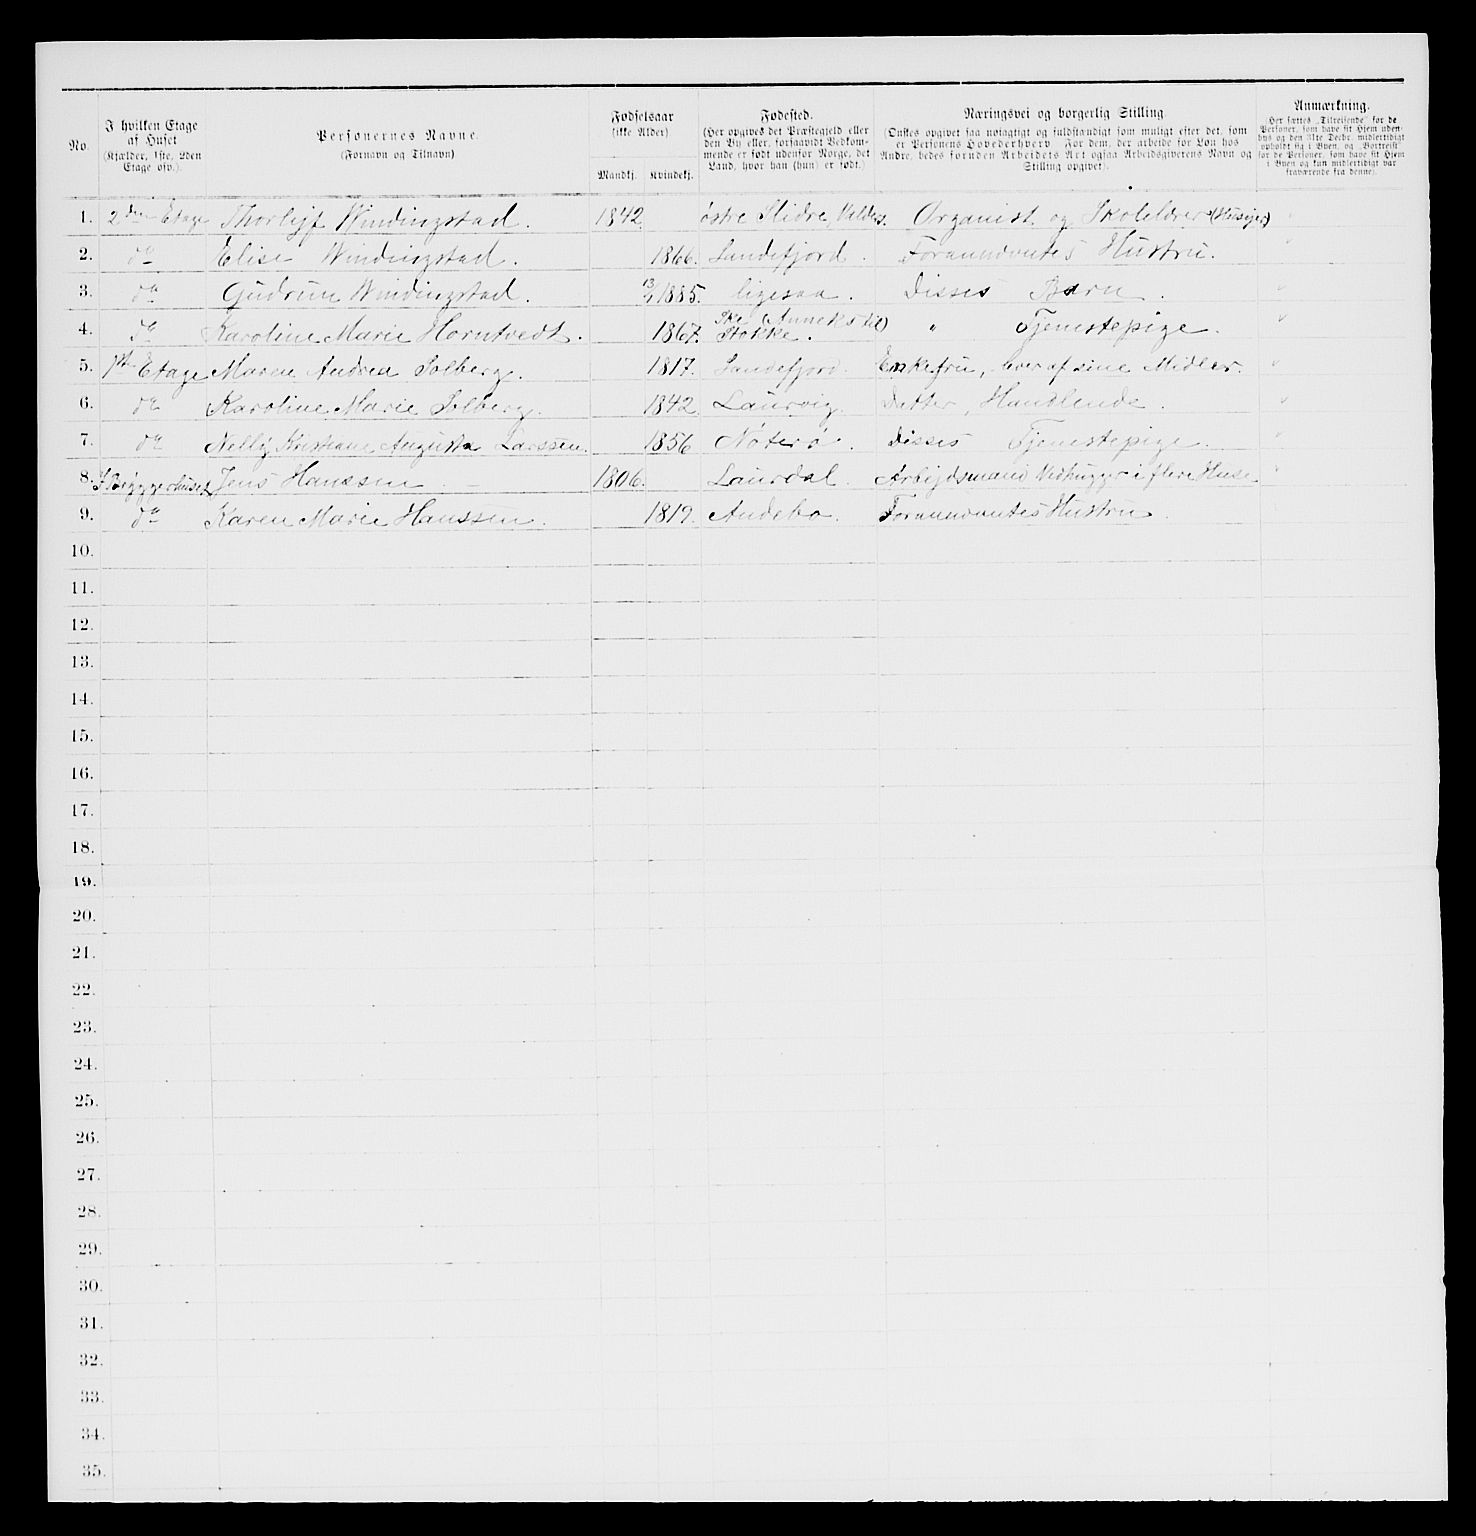 No.
I hvilken Etage
af Huset
(Kjælder, 1ste, 2den
Etage osv.).
Personernes Navne.
(Fornavn og Tilnavn)
Fødselsaar
(ikke Alder)
Mandkj. Kvindekj.
Fødested.
(Her opgives det Præstegjeld eller
den By eller, forsaavidt Vedkom-
mende er født udenfor Norge, det
Land, hvor han (hun) er født.)
Næringsvei og borgerlig Stilling.
(Ønskes opgivet saa nøiagtigt og fuldstændigt som muligt efter det, som
er Personens Hovederhverv For dem, der arbeide for Løn hos
Andre, bedes foruden Arbeidets Art ogsaa Arbeidsgiverens Navn og
Stilling opgivet).
Anmærkning.
(Her sættes „Tilreisende” for de
Personer, som have sit Hjem uden-
bys og den 31te Decbr. midlertidigt
opholdt sig i Byen, og „Bortreist”
for de Personer, som have sit Hjem
i Byen og kun midlertidigt var
fraværende fra denne).
1. 2den Etage Thorleif Windingstad. 1842. østre Slidre, Valders. Organist og Skolelærer (Huseier) "
2. do Elise Windingstad. 1866. Sandefjord. Forannævntes Hustru. "
3. do Gudrun Windingstad. 13/1 1885. ligesaa. Disses Barn. "
4. do Karoline Marie Horntvedt. 1867. (Anneks til) Stokke. " Tjenestepige. "
5. 1ste Etage Maren Andrea Solberg. 1817. Sandefjord Enkefru, lever af sine Midler. "
6. do Karoline Marie Solberg. 1842. Laurvig. Datter, Handlende. "
7. do Nelly Kristiane Augusta Larssen. 1856 Nøterø. Disses Tjenestepige. "
8. I Bryggerhuset Jens Hanssen 1806. Laurdal. Arbejdsmand Vedhugger i flere Huse. "
9. do Karen Marie Hanssen. 1819. Andebo. Forannævntes Hustru.
10.
11.
12.
13.
14.
15.
16.
17.
18.
19.
20.
21.
22.
23.
24.
25.
26.
27.
28.
29.
30.
31.
32.
33.
34.
35.